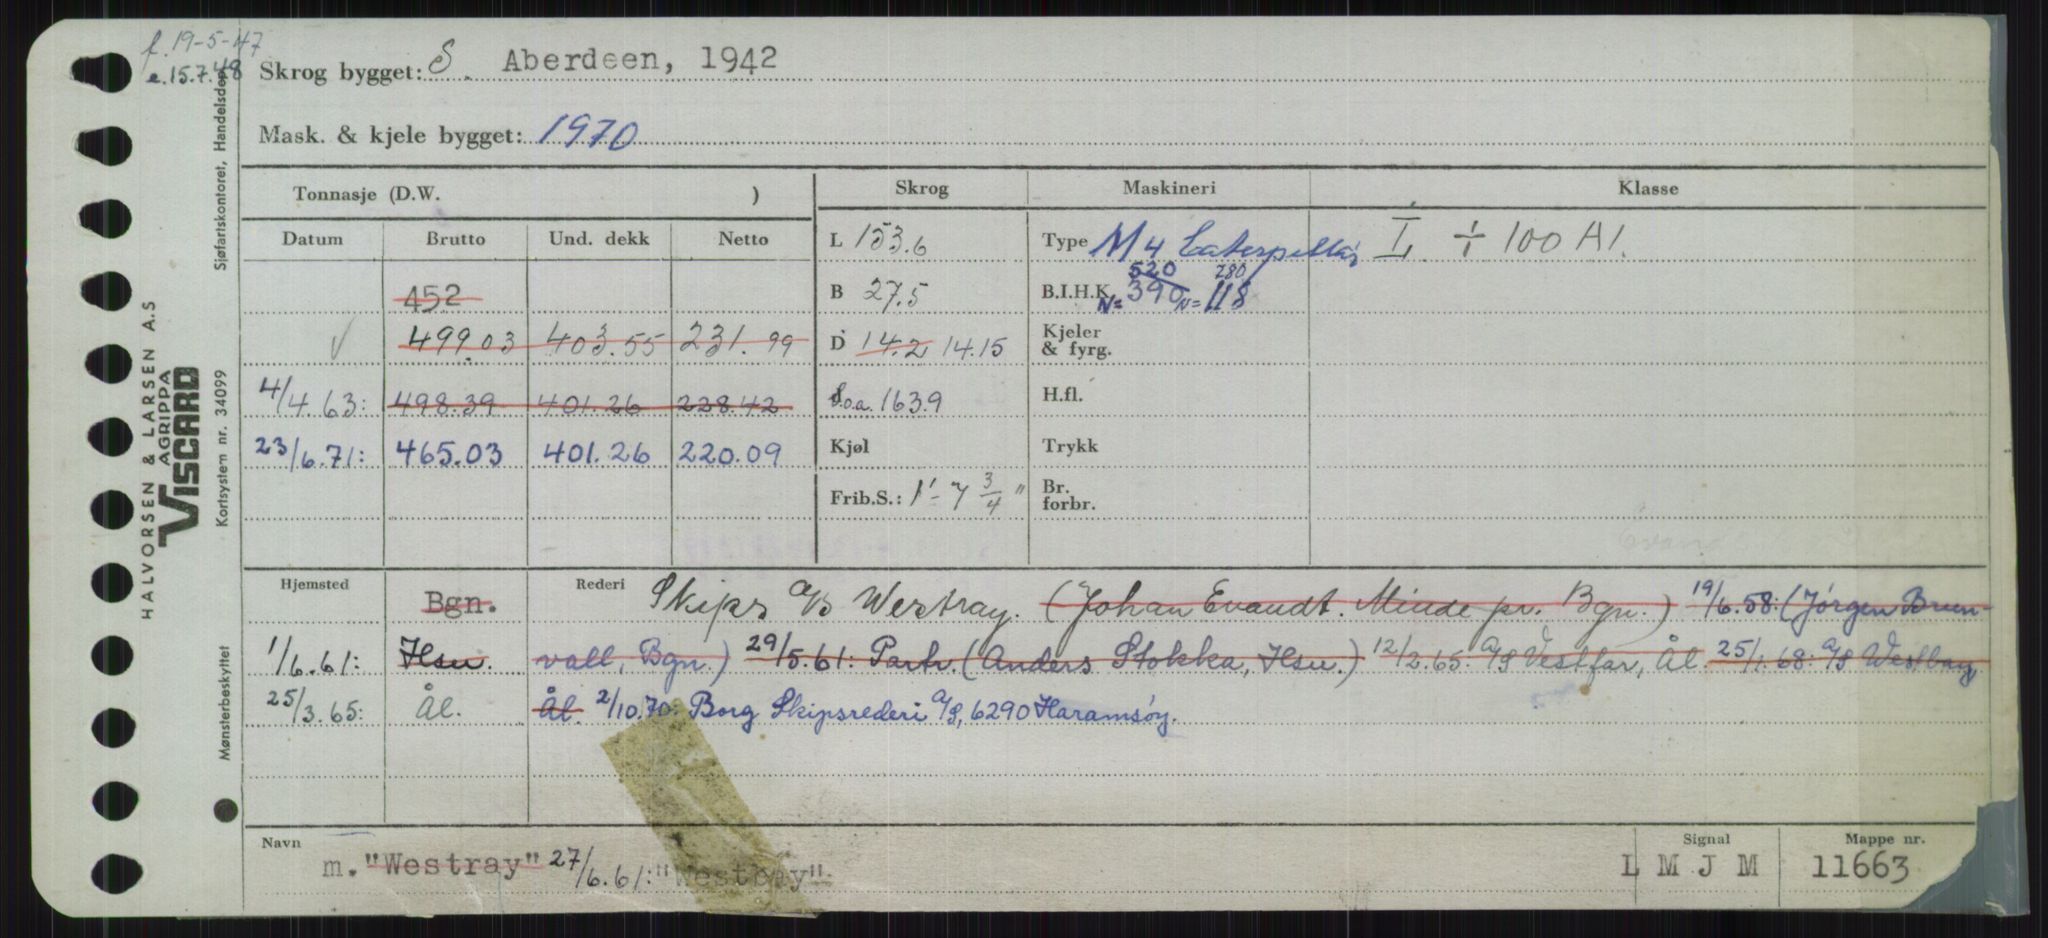 f. 19-5-47
e. 15.7.48
Skrog bygget: S. Aberdeen, 1942
Mask. & kjele bygget: 1970
Tonnasje (D.W. )
Skrog Maskineri Klasse
Datum Brutto Und. dekk Netto
L 153.6 Type M 4 Caterpillar I ÷ 100 A1.
520 780
452 B 27.5 B.I.H.K. N= 390 N= 118
√ 499.03 403.55 231.99 D 14.2 14.15 Kjeler & fyrg.
4/4.63: 498.39 401.26 228.42 L.o.a. 163.9 H.fl.
23/6.71: 465.03 401.26 220.09 Kjøl Trykk
Frib.S.: 1'- 7 3/4 " Br. forbr.
Hjemsted Bgn. Rederi Skips a/s Westray. (Johan Evandt. Minde pr. Bgn.) 19/6.58: (Jørgen Brun-
1/6.61: Hsu. vall, Bgn.) 29/5.61: Partr. (Anders Stokka, Hsu.) 12/2.65: A/S Vestfar, Ål. 25/1.68: A/S Westbay
25/3.65: Ål. Ål. 2/10.70: Borg Skipsrederi A/S, 6290 Haramsøy.
Navn m. "Westray" 27/6.61: "Westbay"
Signal L M J M
Mappe nr. 11663
HALVORSEN & LARSEN A.S
AGRIPPA
VISCARD
Mønsterbeskyttet Kortsystem nr. 34099 Sjøfartskontoret, Handelsdep